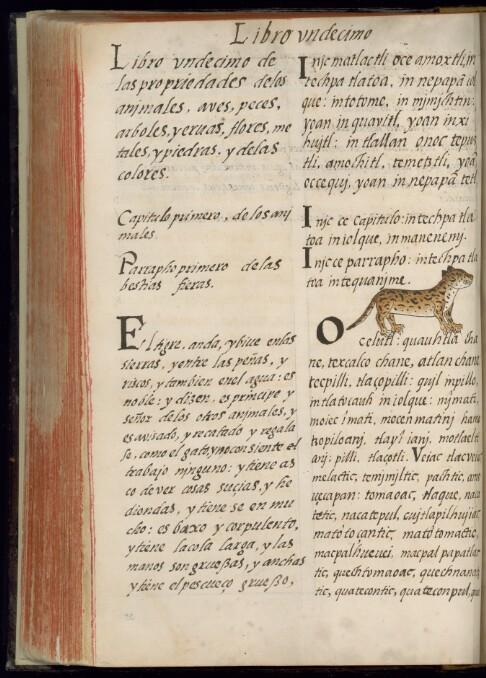 Libro vndecimo
Libro vndecimo de
las propriedades delos
animales, aves, peces,
arboles, yeruas, flores, me
tales, y piedras, y delas
colores.
Capitulo primero, de los ani
males.
Parrapho primero de las
bestias fieras.
El tigre, anda, y biue en las
sierras, y entre las peñas, y
riscos, y tambien enel agua: es
noble: y dizen, es principe y
señor de los otros animales, y
es auisado, y recatado y regala
se, como el gato, y no consiente el
trabajo ninguno: y tiene as
co de ver cosas suçias, y he
diondas, y tiene se en mu
cho: es baxo y corpulento,
y tiene la cola larga, y las
manos son gruessas, y anchas
y tiene el pescueço gruesso,
Injc matlactli oce amoxtli, in
techpa tlatoa, in nepapã iol
que: in totome, in mjmjchtin:
yoan in quavitl, yoan in xi
hujtl: in tlallan onoc tepuz
tli, amochitl, temetztli, yoã
occequj, yoan in nepapã tetl
Injc ce capitulo: intechpa tla
toa in iolque, in manenemj.
Injc ce parrapho: intechpa tla
toa in tequanjme.
Ocelutl: quauhtla cha
ne, texcalco chane, atlan chane
tecpilli, tlaçopilli:
intlatocauh in iolque: mjmati,
moiecimati, mocenmatinj
pilli, tlaçotli. Veiac tlacveiac
melactic, temjmjltic, pachtic,
vecapan: tomaoac, tlaque, naca
tetic, nacatepul, cujtlapilhujiac
matotocantic, matomactic,
macpalhuevei, macpal papatlac
tic, quechtomaoac, quechnanatz
tic, quatecontic, quateconpul,